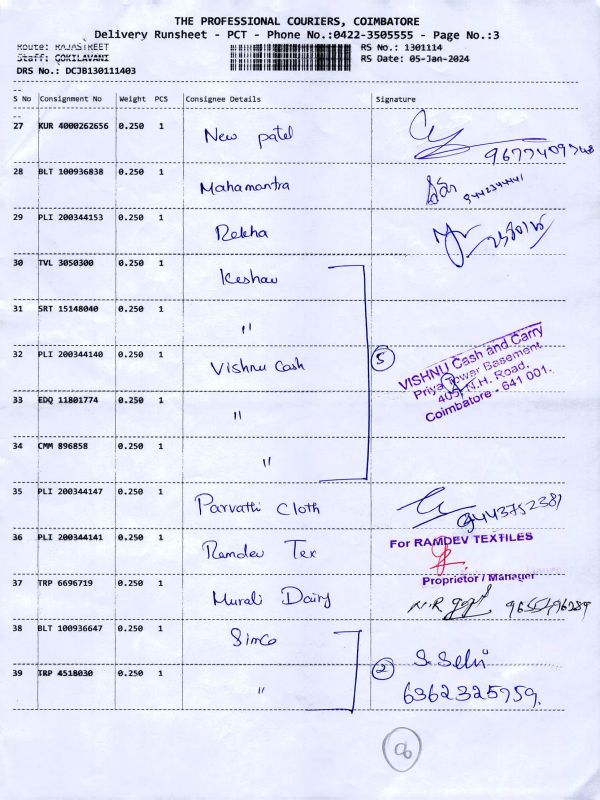 THE PROFESSIONAL COURIERS, COIMBATORE
Delivery Runsheet - PCT - Phone No.:0422-3505555 - Page No.:3
Route: RAJASTREET
RS No.: 1301114
Staff: GOKILAVANI
RS Date: 05-Jan-2024
DRS No.: DCJB130111403
S No Consignment No Weight PCS Consignee Details Signature
27 KUR 4000262656 0.250 1 New patel
28 BLT 100936838 0.250 1 Mahamantra
29 PLI 200344153 0.250 1 Rekha
30 TVL 3050300 0.250 1 Keshav
31 SRT 15148040 0.250 1 "
32 PLI 200344140 0.250 1 Vishnu Cash 5
VISHNU Cash and Carry
Priya Tower Basement
409, N.H. Road,
Coimbatore - 641 001.
33 EDQ 11801774 0.250 1 "
34 CMM 896858 0.250 1 "
35 PLI 200344147 0.250 1 Parvathi Cloth 9443752381
36 PLI 200344141 0.250 1 Ramdev Tex
For RAMDEV TEXTILES
Proprietor / Manager
37 TRP 6696719 0.250 1 Murali Dairy N.R.
38 BLT 100936647 0.250 1 Simco S. Selvi
39 TRP 4518030 0.250 1 " 2 6362325959.